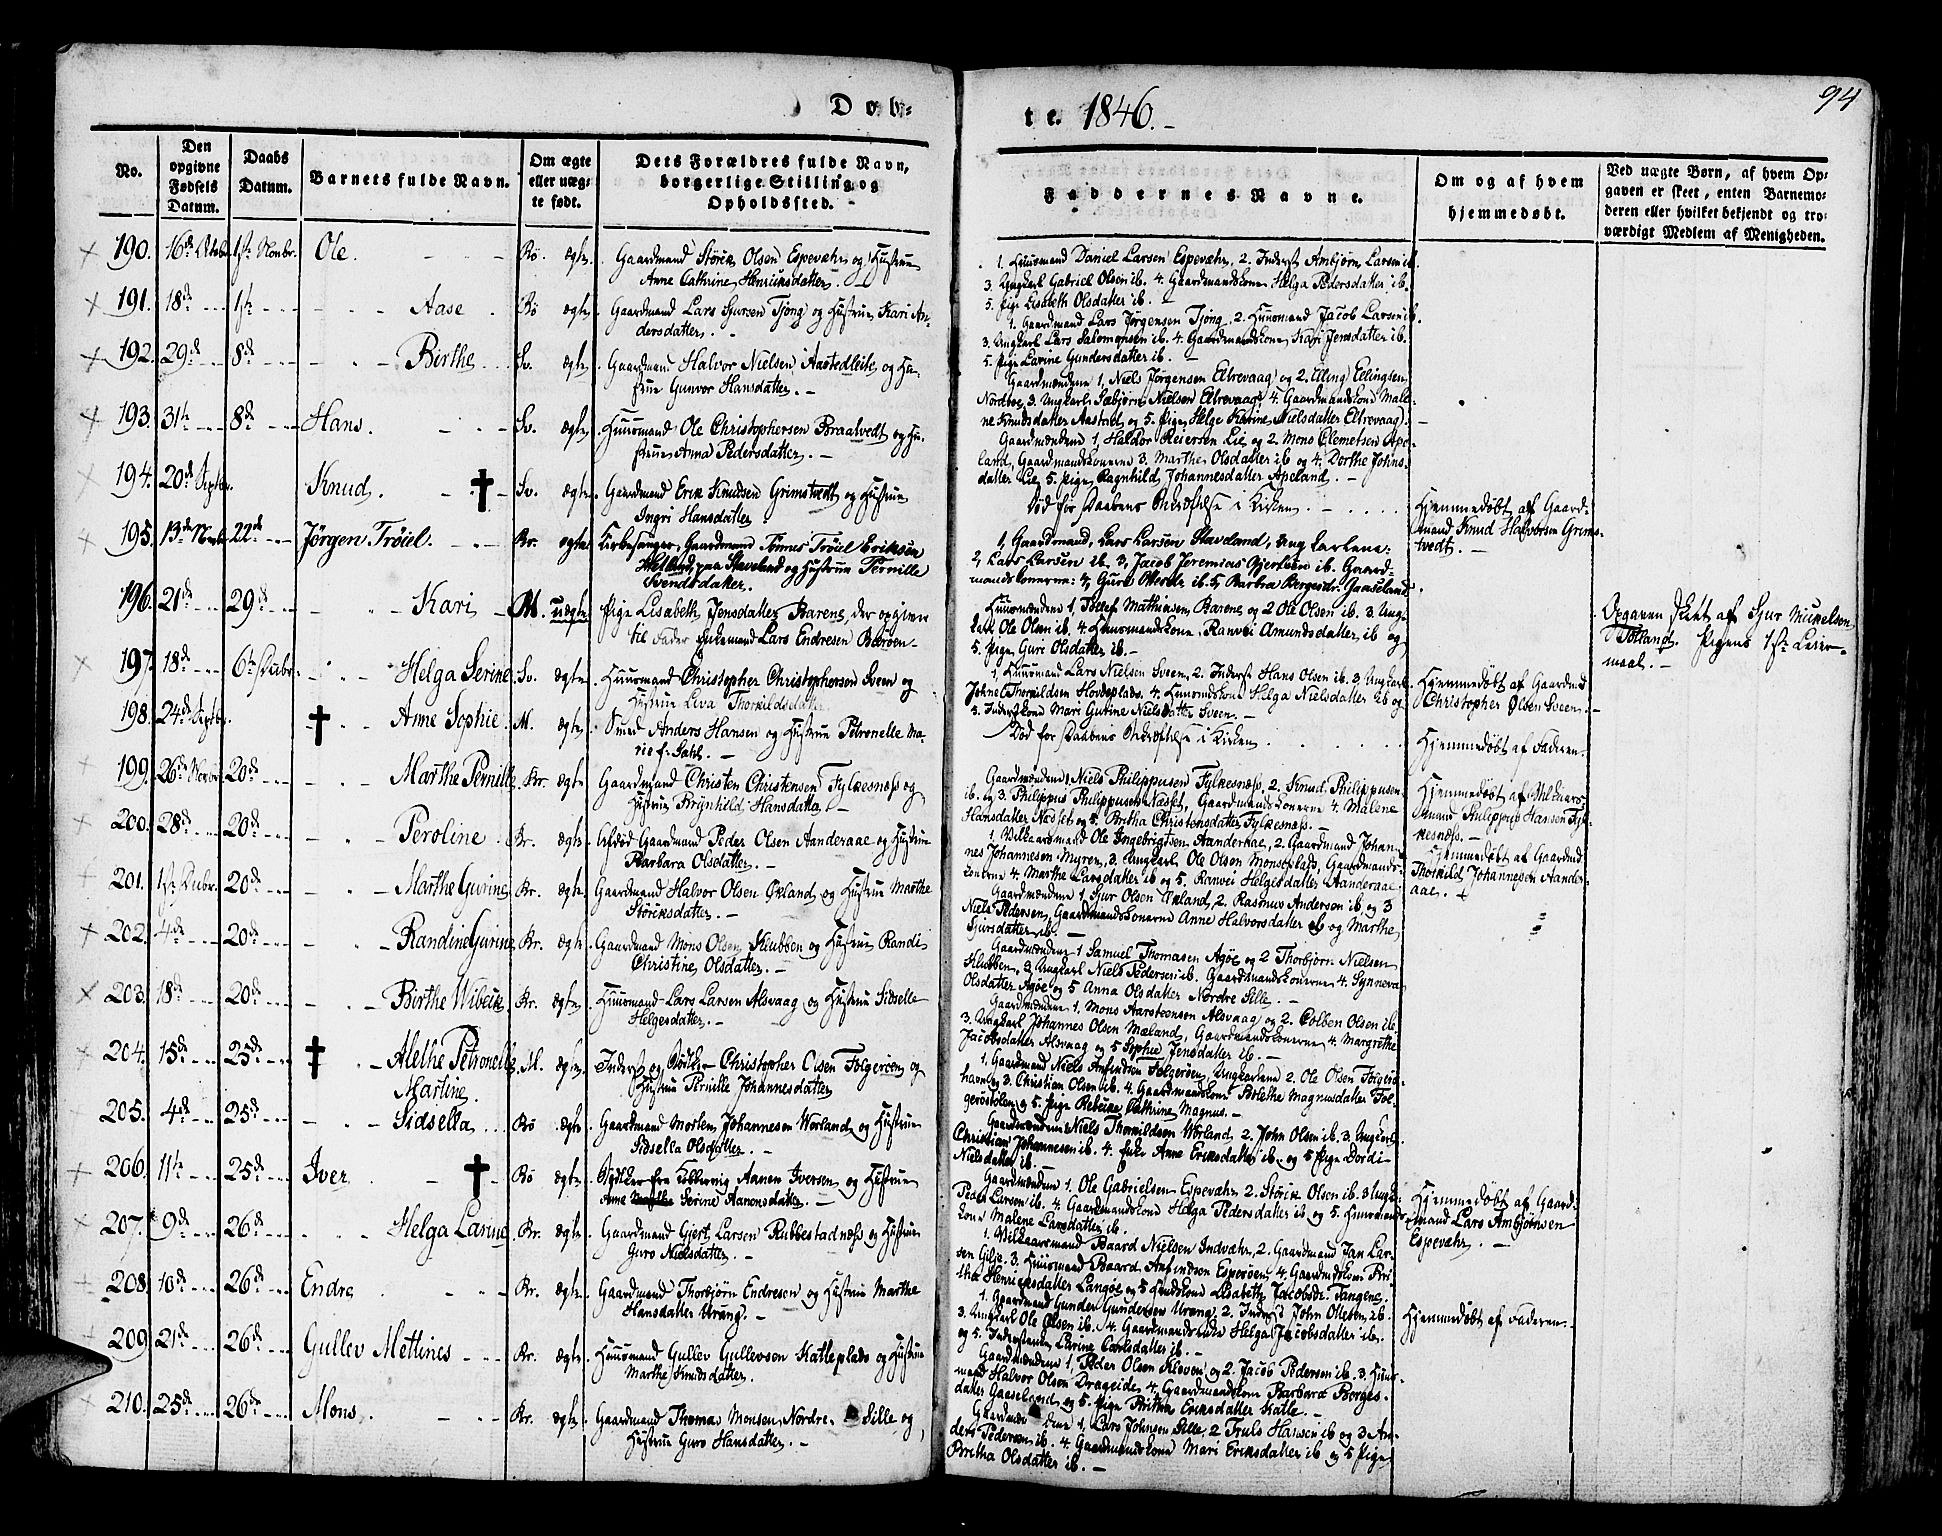 Døb-
te. 1846.-
94
No.
Den opgivne Fødsels Datum.
Daabs Datum.
Barnets fulde Navn.
Om ægte eller uæg- te født.
Dets Forældres fulde Navn, borgerlige Stilling og Opholdssted.
Faddernes Navne.
Om og af hvem hjemmedøbt.
Ved uægte Børn, af hvem Op- gaven er skeet, enten Barnemo- deren eller hvilket bekjendt og tro- værdigt Medlem af Menigheden.
190. 16de Octobr. 1ste Novbr. Ole. Bø. ægte. Gaardmand Størk Olsen Espevæhr og Hustrue
Anne Cathrine Henriksdatter. -
1. Huusmand Daniel Larsen Espevæhr, 2. Inderst Ambjørn Larsen ib.
3. Ungkarl Gabriel Olsen ib. 4. Gaardmandskone Helga Pedersdatter ib.
5. Pige Lisabeth Olsdatter ib.
191. 18de 1ste Aase Bø ægte. Gaardmand Lars Sjursen Tjong og Hustrue Kari An-
dersdatter. -
1. Gaardmand Lars Jørgensen Tjong, 2. Huusmand Jacob Larsen ib.
3. Ungkarl Lars Salomonsen ib. 4. Gaardmandskone Kari Jensdatter ib.
5. Pige Larine Gundersdatter ib.
192. 29de 8de Birthe Sv. ægte. Gaardmand Halvor Nielsen Aastedleite og Hu-
strue Gunvor Hansdatter. -
Gaardmændene 1. Niels Jørgensen Eltrevaag og 2. Elling Ellingsen
Nordboe, 3. Ungkarl Sæbjørn Nielsen Eltrevaag 4. Gaardmandskone Male-
ne Knudsdatter Aastred og 5. Pige Helge Karine Nielsdatter Eltrevaag. -
193. 31te 8de Hans. Sv. ægte. Huusmand Ole Christophersen Braatvedt og Hu-
strue Anna Pedersdatter. -
Gaardmændene 1. Haldor Reiersen Lie og 2. Mons Clemetsen Ape-
land, Gaardmandskonerne 3. Marthe Olsdatter ib og 4. Dorthe Johns-
datter Lie, 5. Pige Ragnhild Johannesdatter Apeland. -
194. 20de Septbr. Knud. Sv. ægte. Gaardmand Erik Knudsen Grimstvedt og Hustrue
Ingri Hansdatter.
Død før Daabens Bekræftelse i Kirken.
Hjemmedøbt af Gaard-
mand Knud Halvorsen Grims-
tvedt. -
195. 13de Novbr. 22de Jørgen Trøiel. Br. ægte Kirkesanger, Gaardmand Tønnes Trøiel Eriksen
paa Stavland og Hustrue Pernille
Svendsdatter.
1, Gaardmand, Lars Larsen Stavland, Ungkarlene:
2, Lars Larsen ib. 3, Jacob Jeremias Gjertsen ib. Gaard-
mandskonerne: 4, Guro Ottersdr ib. 5, Bartha Borgesdr. Gaaseland.
196. 21de 29de Kari M. uægte. Pige Lisabeth Jensdatter Barene, der opgiver
til Fader Enkemand Lars Endresen Børøen -
Huusmændene 1. Tollef Mathiasen Barene, og 2 Ole Olsen ib. 3. Ung-
karl Ole Olsen ib. 4. Huusmandskone Ranvei Amundsdatter ib og
5. Pige Guri Olsdatter ib. -
Opgaven skeet af Sjur Mikelsen
Totland. Pigens 1ste Leier-
maal. -
197. 18de 6te Decbr. Helga Serine Sv. ægte. Huusmand Christopher Christophersen Sveen og
Hustrue Eliva Thorkildsdatter
1. Huusmand Lars Nielsen Sveen, 2. Inderst Hans Olsen ib. 3. Ungkarl
Johnel Thorkildsen Hovdeplads. 4. Huusmandskone Helga Nielsdatter ib og
5. Inderstkone Mari Gurine Nielsdatter Sveen. -
Hjemmedøbt af Gaardmd
Christopher Olsen Sveen. -
198. 24de Septbr. Anne Sophie. M. ægte. Smed Anders Hansen og Hustrue Petronelle Ma-
rie f. Dahl. -
Død før Daabens Bekræftelse i Kirken
Hjemmedøbt af Faderen.
199. 26de Novbr. 20de Marthe Pernille Br. ægte. Gaardmand Christen Christensen Fylkesnæss og
Hustrue Brynhild Hansdatter. -
Gaardmændene, Niels Philippusen Fylkesnæss, 2. Knud Philippusen
ib. og 3. Philippus Philippusen Næsset, Gaardmandskonerne 4. Malene
Hansdatter Næsset og 5. Britha Christensdatter Fylkesnæss. -
Hjemmedøbt af Vilkaars-
mand Philippus Hansen Fyl-
kesnæss. -
200. 28de 20de Peroline. Br. ægte. Afdød Gaardmand Peder Olsen Aanderaae og Hustrue
Barbara Olsdatter. -
1. Vilkaarsmand Ole Ingebrigtsen Aanderaae, 2. Gaardmand Johan-
nes Johannesen Myren, 3. Ungkarl Ole Olsen Monseplads, Gaardmands-
konerne 4. Marthe Larsdatter ib og 5. Ranvei Helgesdatter Aanderaae.
Hjemmedøbt af Gaardmd
Thorkild Johannesen Aander-
aae. -
201. 1ste Decbr. 20de Marthe Gurine Br. ægte. Gaardmand Halvor Olsen Økland og Hustrue Marthe
Størksdatter. -
Gaardmændene 1. Sjur Olsen Økland, 2. Rasmus Andersen ib og 3
Niels Pedersen, Gaardmandskonerne Anne Halvorsdatter ib og Marthe
Sjursdatter ib. -
202. 4de 20de Randine Gurine Br. ægte. Gaardmand Mons Olsen Klubben og Hustrue Randi
Christine Olsdatter. -
Gaardmændene 1 Samuel Thomasen Agøe og 2 Thorbjørn Nielsen
Klubben, 3. Ungkarl Niels Pedersen ib. Gaardmandskonerne 4. Synneva
Olsdatter Agøe og 5 Anna Olsdatter Nordre Sille. -
203. 18de 20de Birthe Wibeik Br. ægte. Huusmand Lars Larsen Alsvaag og Hustrue Sidselle
Helgesdatter. -
Gaardmændene 1. Mons Aarsteensen Alsvaag og 2. Colben Olsen ib.
3. Ungkarl Johannes Olsen Mæland, Gaardmandskonerne 4. Margrethe
Jacobsdatter Alsvaag og 5 Sophie Jensdatter ib. -
204. 15de 25de Alethe Petronelle M. ægte. Inderst og Bødker Christopher Olsen Folgerøen og
Martine. Hustrue Pernille Johannesdatter
1. Gaardmand Niels Anfindsen Folgerøen, Ungkarlene 2. Ole Olsen Folgerø-
havn, 3. Christian Olsen ib. 4. Gaardmandskone Bolethe Magnusdatter Fol-
gerøholen, og 5. Pige Rebekke Cathrine Magnus. -
205. 4de 25de Sidsella Bø ægte. Gaardmand Morten Johannesen Worland og Hustrue
Sidsella Olsdatter. -
Gaardmændene Niels Thorkildsen Worland, 2. John Olsen ib. 3. Ungkarl
Christian Johannesen ib. 4. Enke Anne Eriksdatter ib. og 5 Pige Dordi
Nielsdatter ib. -
206. 11te 25de Iver Bø ægte. Aanen Iversen og Hustrue
Anne Serine Aanensdatter. -
Gaardmændene 1. Ole Gabrielsen Espevæhr 2. Størk Olsen ib. 3 Ungk:
Peder Larsen ib. 4. Gaardmandskone Helga Pedersdatter ib og 5. Huusmands-
kone Malene Larsdatter ib.
Hjemmedøbt af Gaard-
mand Lars Ambjørnsen
Espevæhr. -
207. 9de 26de Helga Larine Br. ægte. Gaardmand Gjert Larsen Rubbestadnæss og Hustrue
Guro Nielsdatter. -
1. Vilkaarsmand Baard Nielsen Indvæhr, 2. Gaardmand Jan Lar-
sen Gilje. 3. Huusmand Baard Anfindsen Esperøen, 4. Gaardmdskone Bri-
tha Henriksdatter Langøe og 5 Huusmdskone Lisabeth Jacobsdr. Tangene.
208. 10de 26de Endre Br. ægte. Gaardmand Thorbjørn Endresen og Hustrue Marthe
Hansdatter Urang. -
1. Gaardmand Gunder Gundersen Urang, 2. Inderst John Ollesen ib.
3. Ungkarl Ole Olsen ib. 4. Gaardmands Enke Helga Jacobsdatter ib.
og 5. Inderstenke Larine Carlsdatter ib. -
Hjemmedøbt af Faderen.
209. 21de 26de Gullev Mettines Br. ægte. Huusmand Gullev Gullevsen Katleplads og Hustrue
Marthe Knudsdatter.
Gaardmændene 1. Peder Olsen Kleven og 2. Jacob Pedersen ib. 3. Huus-
mand Halvor Olsen Drageide, 4. Gaardmandskone Barbara Borges-
datter Gaaseland, og 5. Pige Britha Eriksdatter Katle. -
210. 25de 26de Mons. Br. ægte. Gaardmand Thomas Monsen Nordre Sille og
Hustrue Guro Hansdatter. -
Gaardmændene 1. Lars Johnsen Sille, 2 Truls Hansen ib og 3 An-
ders Pedersen ib. 4. Gaardmandskone Mari Eriksdatter ib og 5 Pige
Britha Olsdatter ib. -